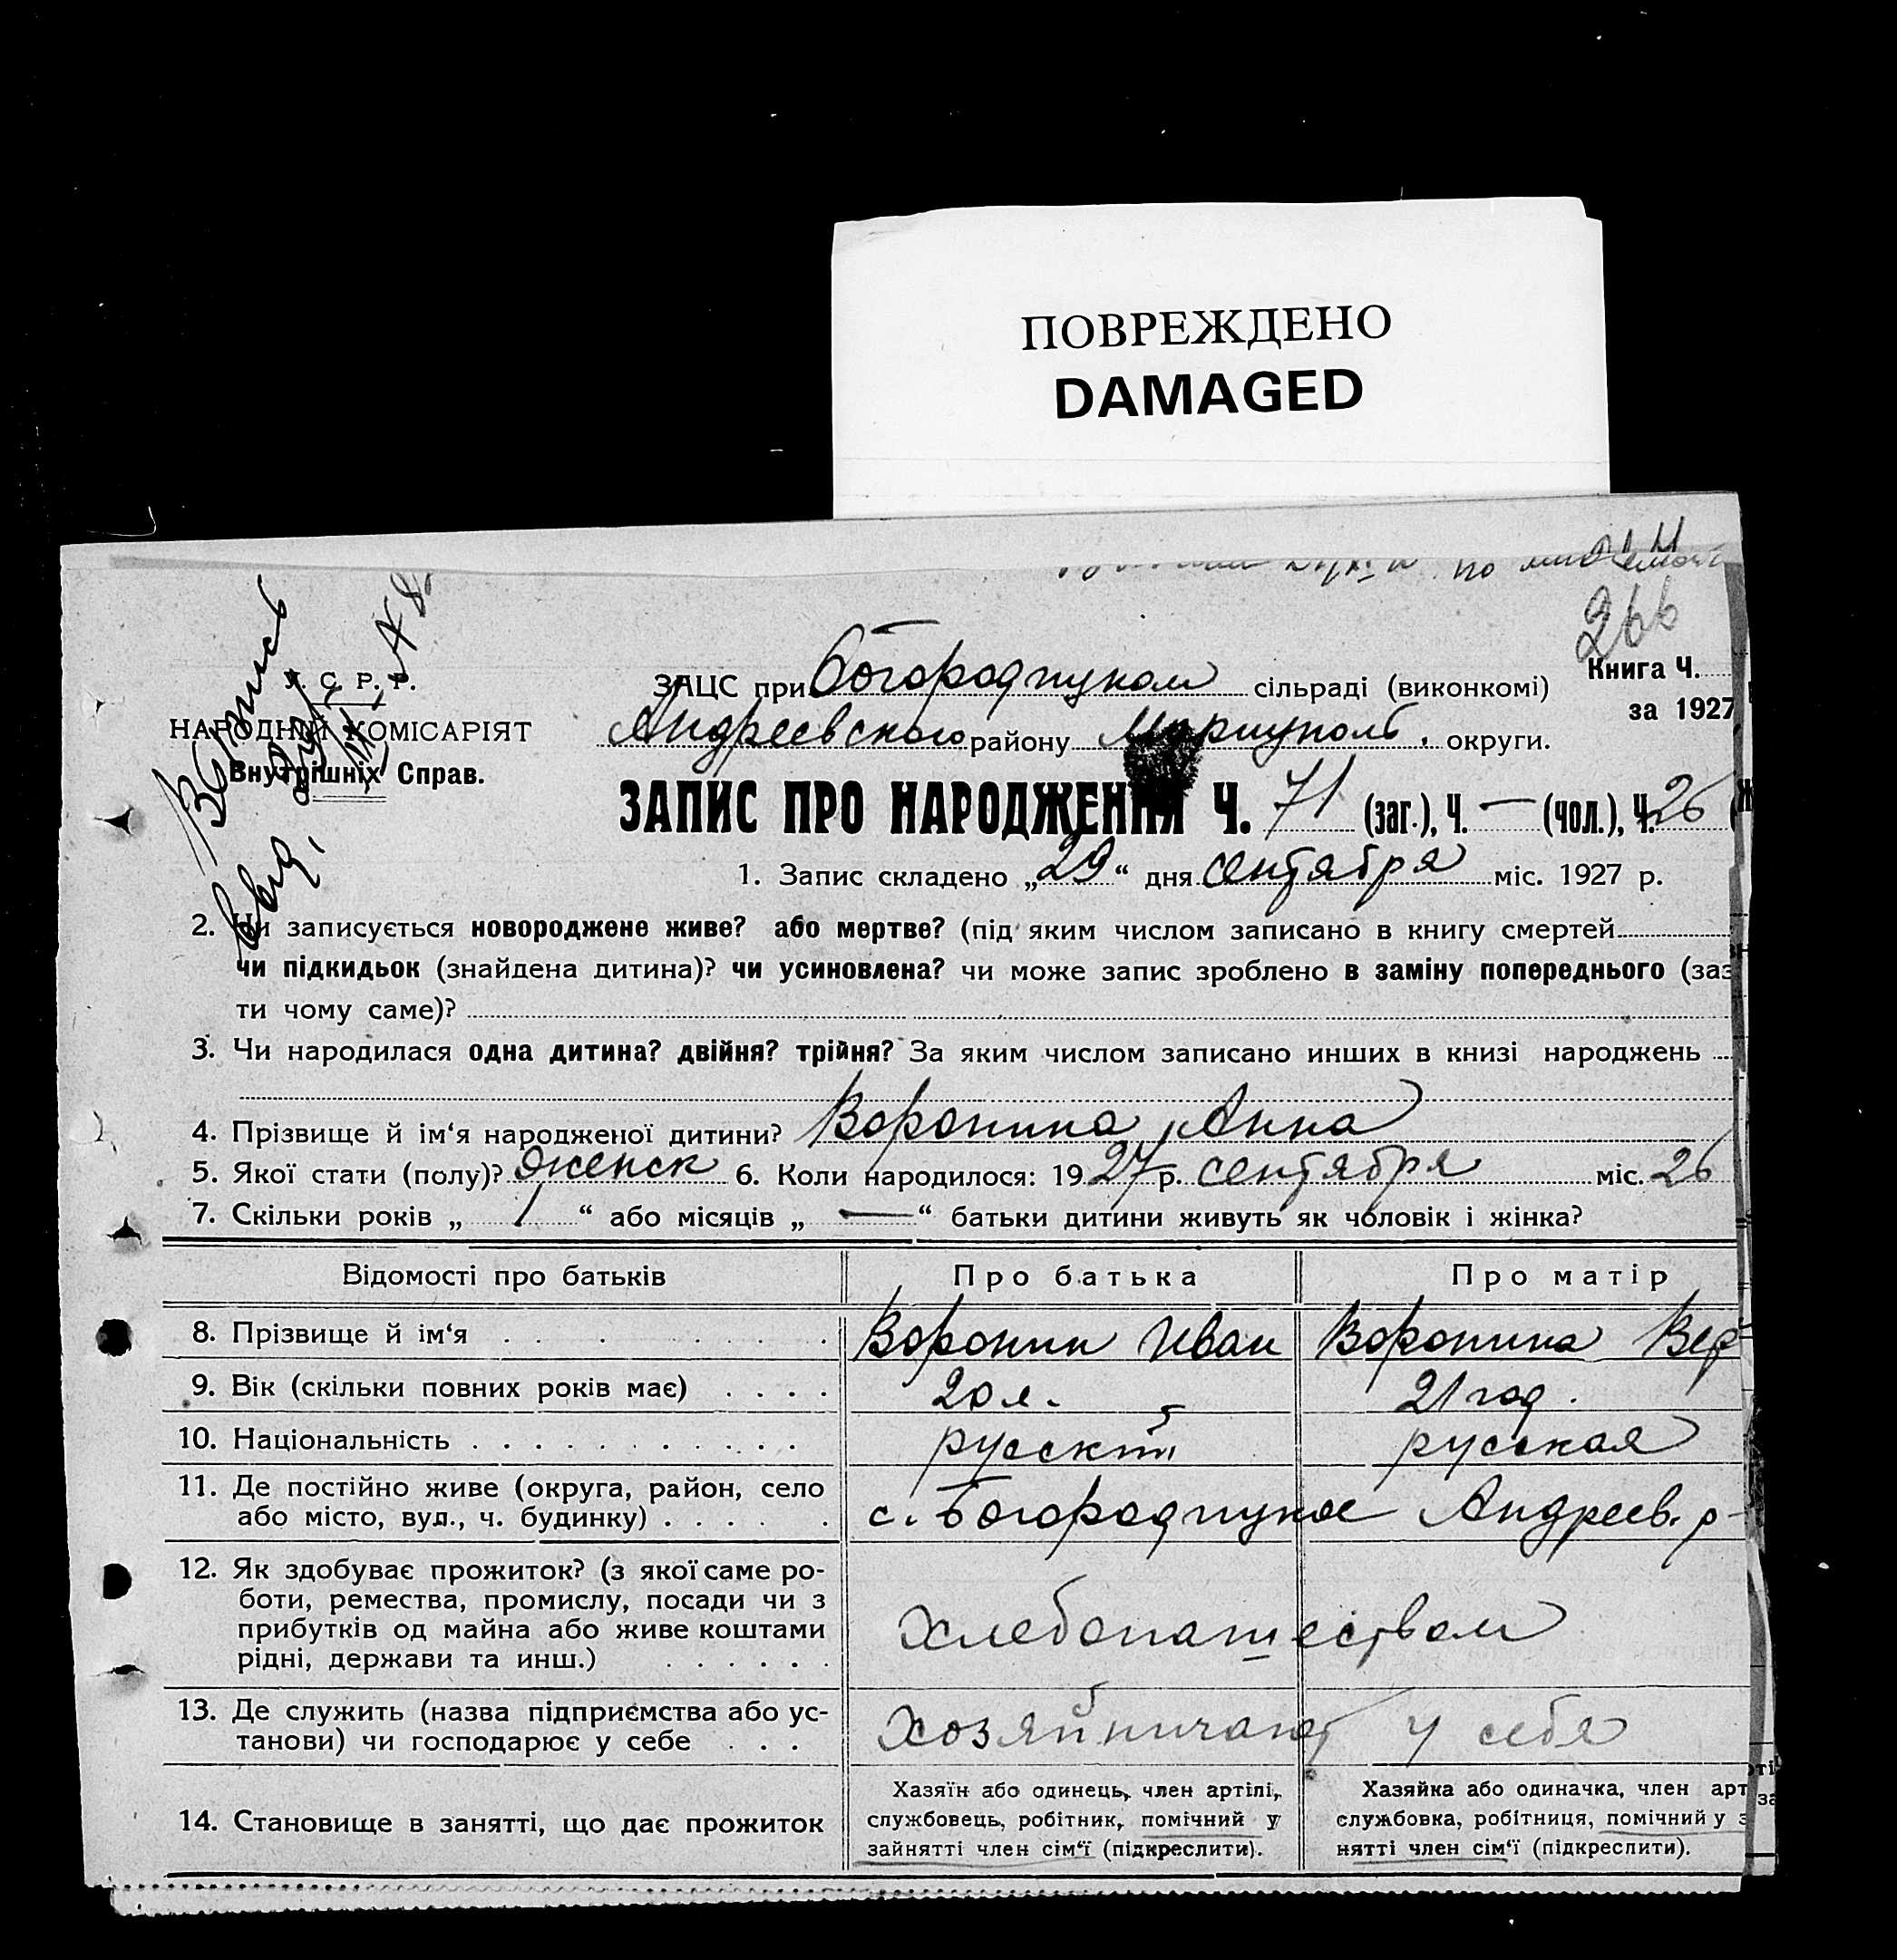 ПОВРЕЖДЕНО
DAMAGED
по
266
У. С. Р. Р.
НАРОДНІЙ КОМІСАРІЯТ
Внутрішніх Справ.
ЗАЦС при Богородичном сільраді (виконкомі)
Книга Ч.
за 1927
Андреевского району Мариуполь. округи.
ЗАПИС ПРО НАРОДЖЕННЯ Ч. 71 (заг.), Ч. — (чол.), Ч. 26 (
1. Запис складено „29“ дня сентября міс. 1927 р.
2. Чи записується новороджене живе? або мертве? (під яким числом записано в книгу смертей
чи підкидьок (знайдена дитина)? чи усиновлена? чи може запис зроблено в заміну попереднього (заз
ти чому саме)?
3. Чи народилася одна дитина? двійня? трійня? За яким числом записано инших в книзі народжень
4. Прізвище й ім‘я народженої дитини? Воронина Анна
5. Якої стати (полу)? женск 6. Коли народилося: 1927 р. сентября міс. 26
7. Скільки років „ 1 “ або місяців „ — “ батьки дитини живуть як чоловік і жінка?
Відомості про батьків Про батька Про матір
8. Прізвище й ім‘я Воронин Иван Воронина Вер
9. Вік (скільки повних років має) 20 л. 21 год.
10. Національність русский русская
11. Де постійно живе (округа, район, село
або місто, вул., ч. будинку) с. Богородичное Андреев. р-
12. Як здобуває прожиток? (з якої саме ро-
боти, ремества, промислу, посади чи з
прибутків од майна або живе коштами
рідні, держави та инш.)
хлебопашеством
13. Де служить (назва підприємства або ус-
танови) чи господарює у себе
хозяйничают у себя
14. Становище в занятті, що дає прожиток
Хазяїн або одинець, член артілі,
службовець, робітник, помічний у
зайнятті член сім‘ї (підкреслити).
Хазяйка або одиначка, член арт
службовка, робітниця, помічний у з
нятті член сім‘ї (підкреслити).